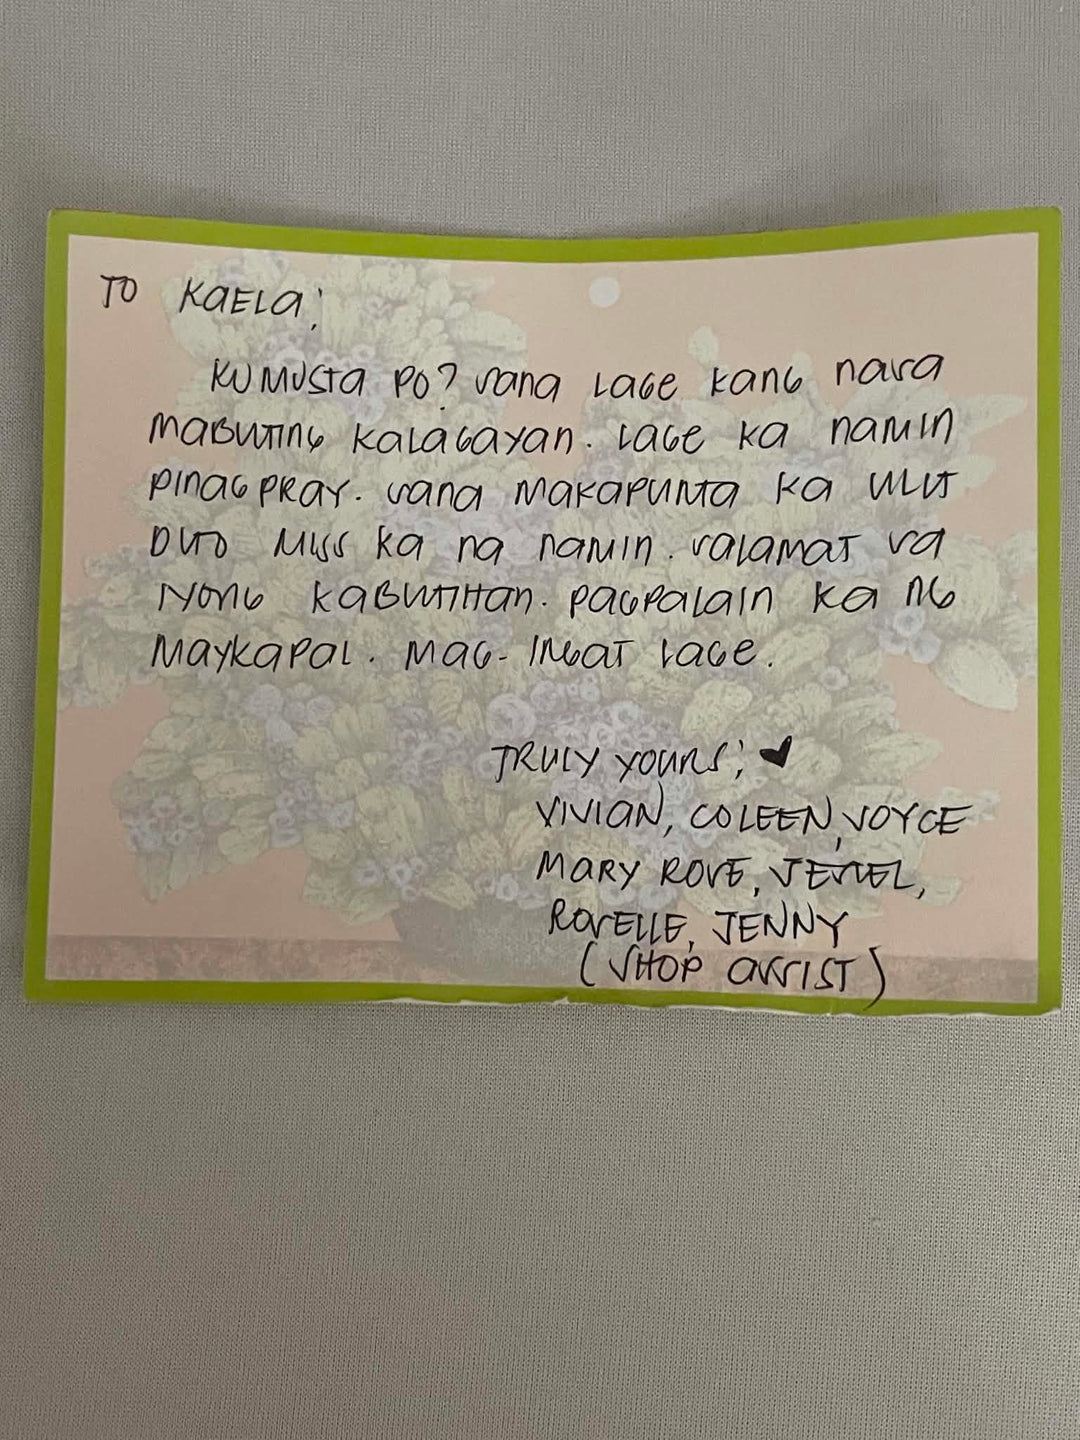 TO KAELA;
KUMUSTA PO? SANA LAGE KANG NASA
MABUTING KALAGAYAN. LAGE KA NAMIN
PINAGPRAY. SANA MAKAPUNTA KA ULIT
DITO MISS KA NA NAMIN. SALAMAT SA
IYONG KABUTIHAN. PAGPALAIN KA NG
MAYKAPAL. MAG-INGAT LAGE.
TRULY YOURS; ♥
VIVIAN, COLEEN, JOYCE
MARY ROSE,
ROSELLE, JENNY
(SHOP ASSIST)